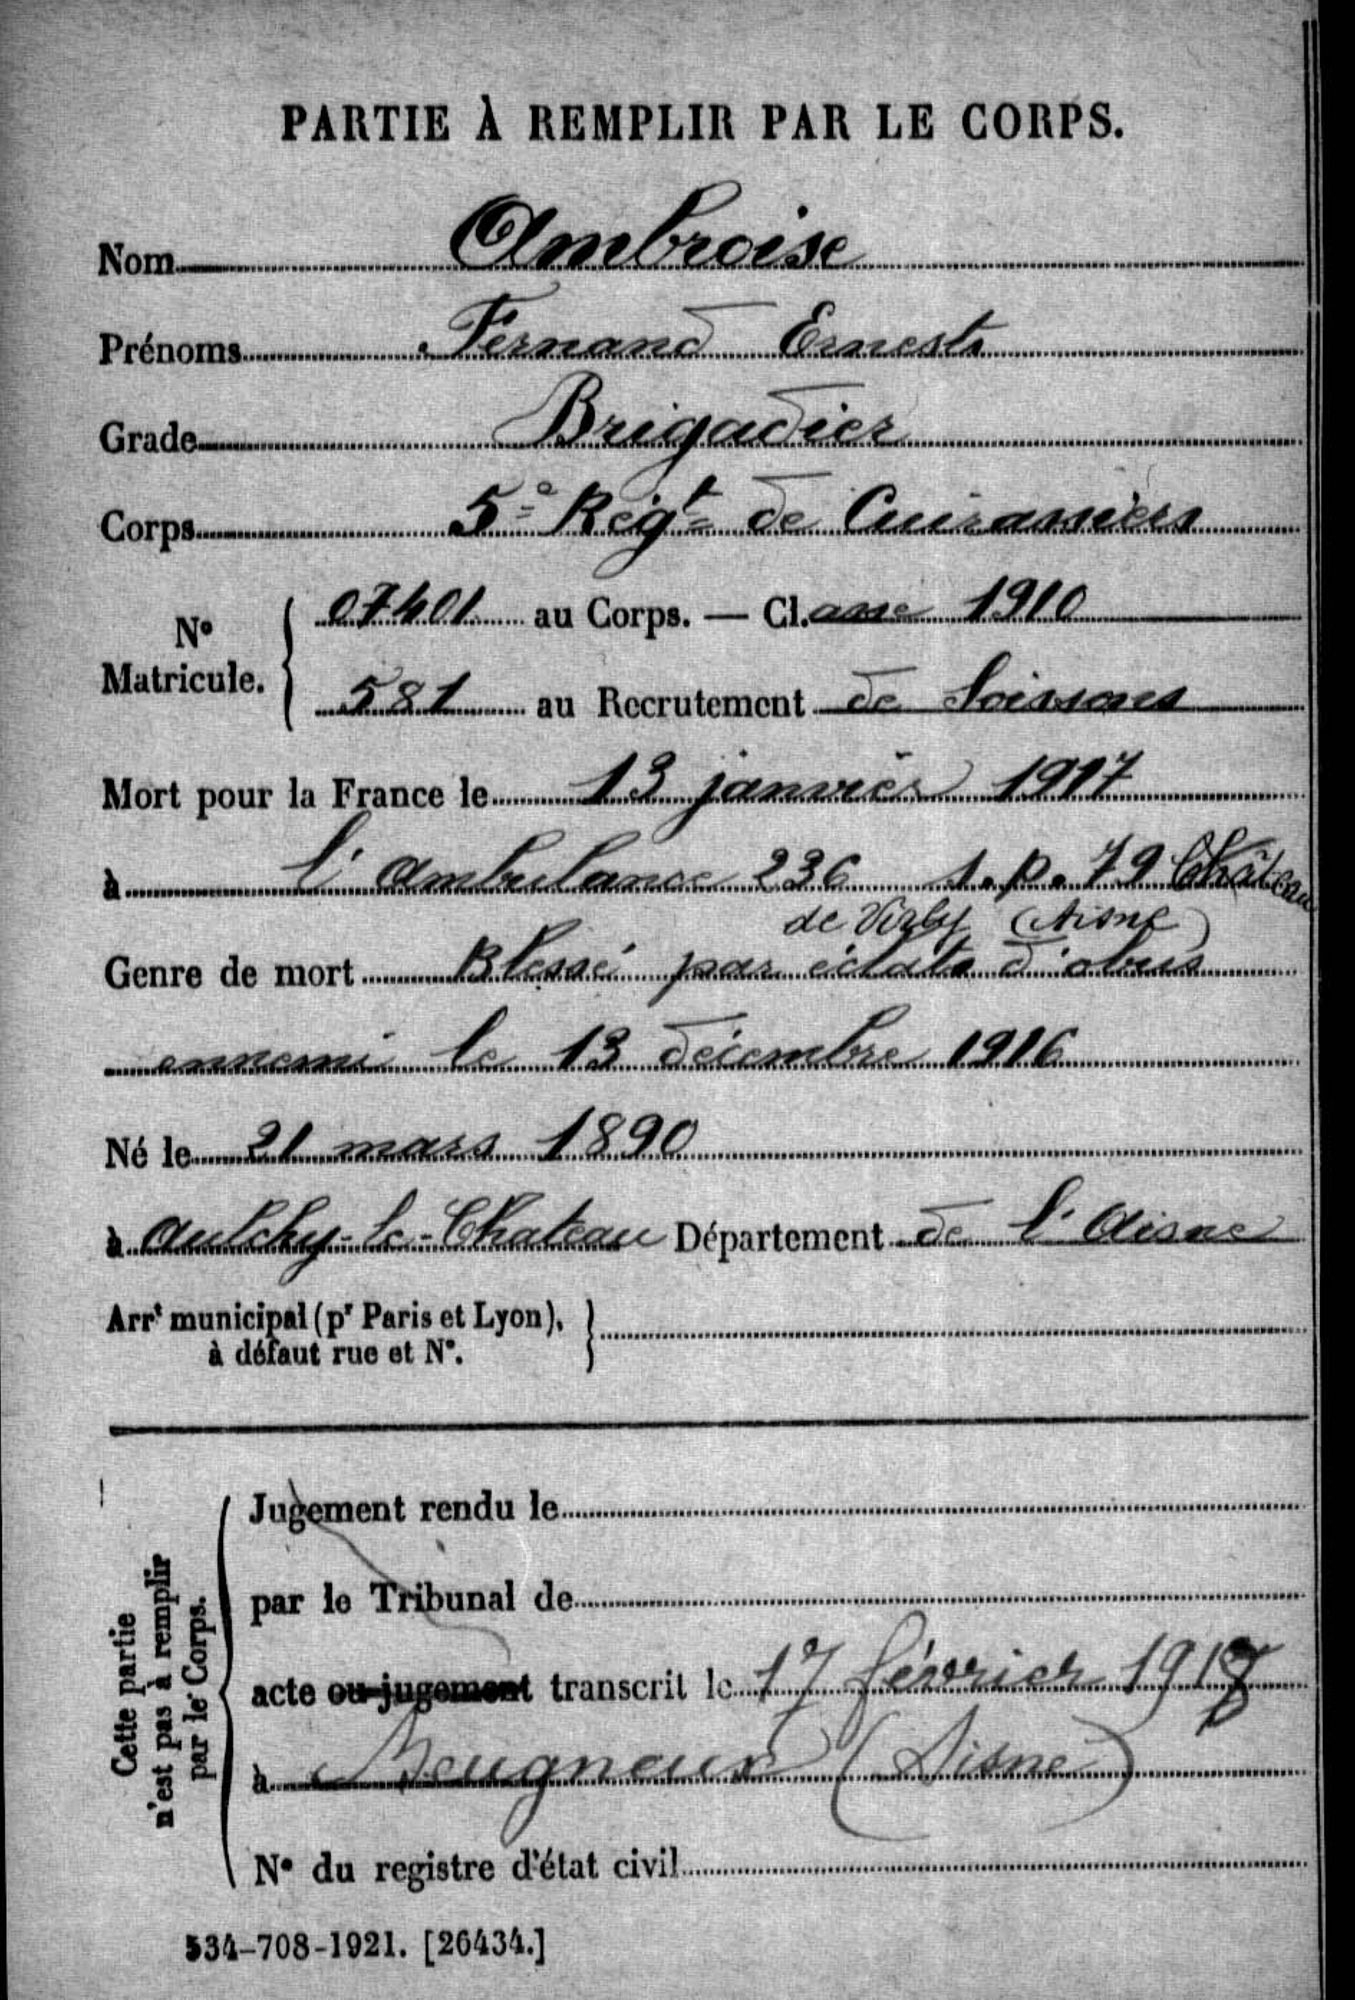 PARTIE À REMPLIR PAR LE CORPS.
Nom Ambroise
Prénoms Fernand Ernest
Grade Brigadier
Corps 5e Régt de Cuirassiers
No Matricule. 07401 au Corps. — Cl.asse 1910
581 au Recrutement de Soissons
Mort pour la France le 13 janvier 1917
à l'Ambulance 236 s.p. 79 Château
de Virly (Aisne)
Genre de mort Blessé par éclats d'obus
ennemi le 13 décembre 1916
Né le 21 mars 1890
à Oulchy-le-Chateau Département de l'Aisne
Arrt municipal (pr Paris et Lyon),
à défaut rue et No.
Cette partie
n'est pas à remplir
par le Corps.
Jugement rendu le
par le Tribunal de
acte ou jugement transcrit le 17 février 1918
à Beugneux (Aisne)
No du registre d'état civil
534-708-1921. [26434.]